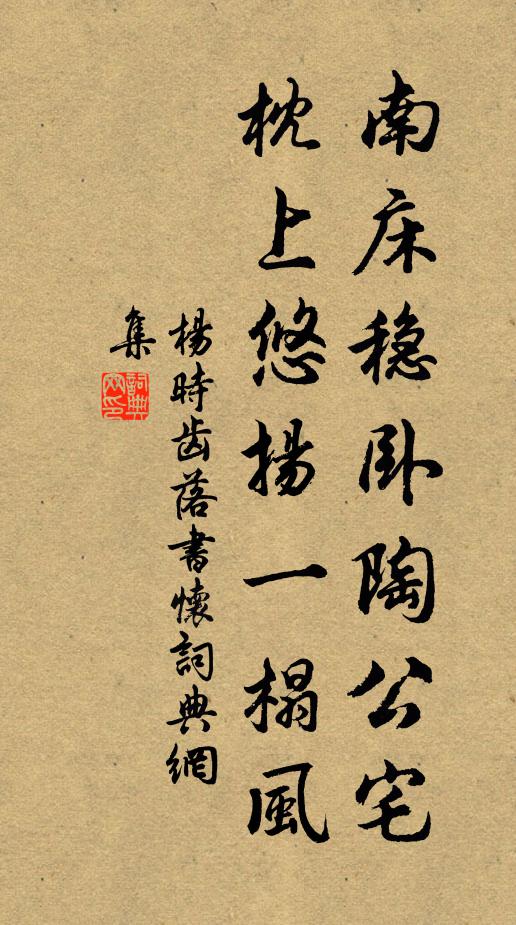 南床稳卧陶公宅
枕上悠揚一榻風
楊時齿落書懷詞典網
集
詞典
网印